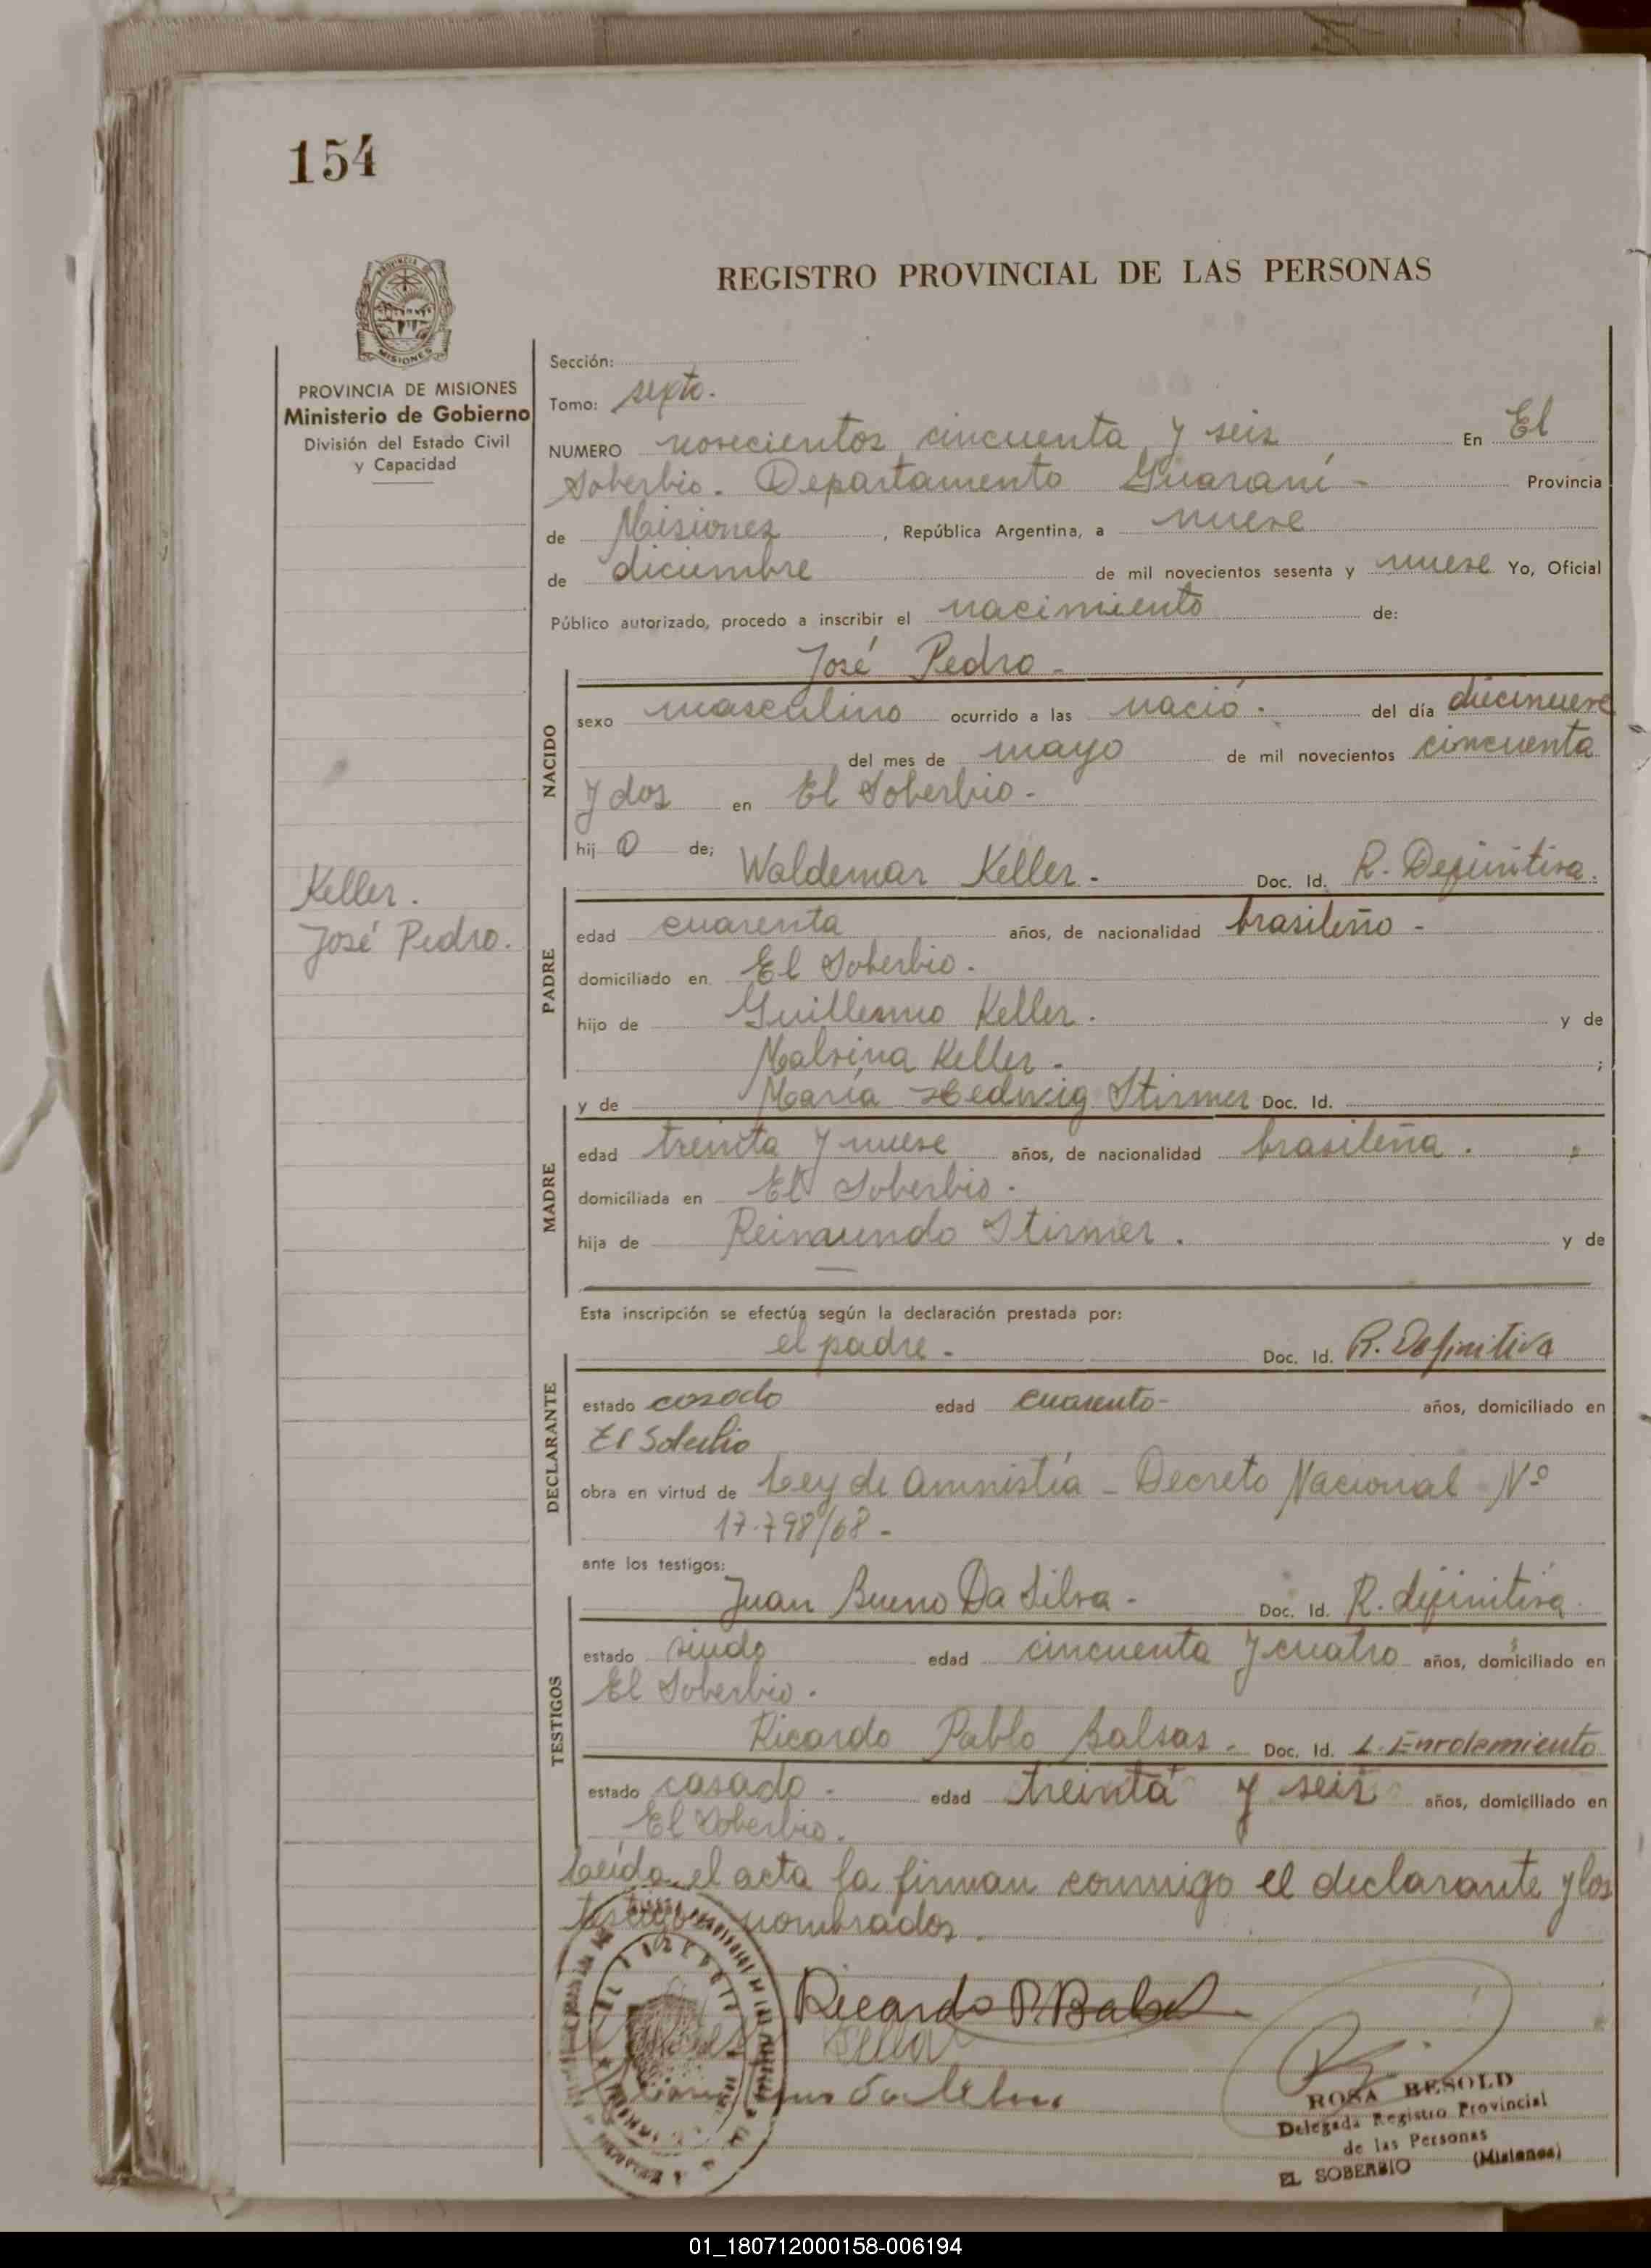 154
REGISTRO PROVINCIAL DE LAS PERSONAS
PROVINCIA DE MISIONES
Ministerio de Gobierno
División del Estado Civil
y Capacidad
Keller.
José Pedro.
Sección:
Tomo: septo.
NUMERO novecientos cincuenta y seis En El
Soberbio. Departamento Guaraní - Provincia
de Misiones, República Argentina, a nueve
de diciembre de mil novecientos sesenta y nueve Yo, Oficial
Público autorizado, procedo a inscribir el nacimiento de:
José Pedro -
NACIDO
sexo masculino ocurrido a las nació. del día diecinueve
del mes de mayo de mil novecientos cincuenta
y dos en El Soberbio -
hij o de; Waldemar Keller. Doc. Id. R. Definitiva.
PADRE
edad cuarenta años, de nacionalidad brasileño -
domiciliado en El Soberbio.
hijo de Guillermo Keller. y de
Malvina Keller. ;
y de María Hedwig Stirmer Doc. Id.
MADRE
edad treinta y nueve años, de nacionalidad brasileña.
domiciliada en El Soberbio.
hija de Reimundo Stirmer. y de
Esta inscripción se efectúa según la declaración prestada por:
el padre - Doc. Id. R. Definitiva
DECLARANTE
estado casado edad cuarenta - años, domiciliado en
El Soberbio
obra en virtud de Ley de Amnistía - Decreto Nacional Nº
17.798/68 -
ante los testigos:
Juan Bueno Da Silva - Doc. Id. R. definitiva
TESTIGOS
estado viudo edad cincuenta y cuatro años, domiciliado en
El Soberbio.
Ricardo Pablo Balsas - Doc. Id. L. Enrolamiento
estado casado - edad treinta y seis años, domiciliado en
El Soberbio.
Leída el acta la firman conmigo el declarante y los
testigos nombrados.
Ricardo P. Balsas
Keller
ROSA BESOLD
Delegada Registro Provincial
de las Personas
EL SOBERBIO (Misiones)
01_180712000158-006194